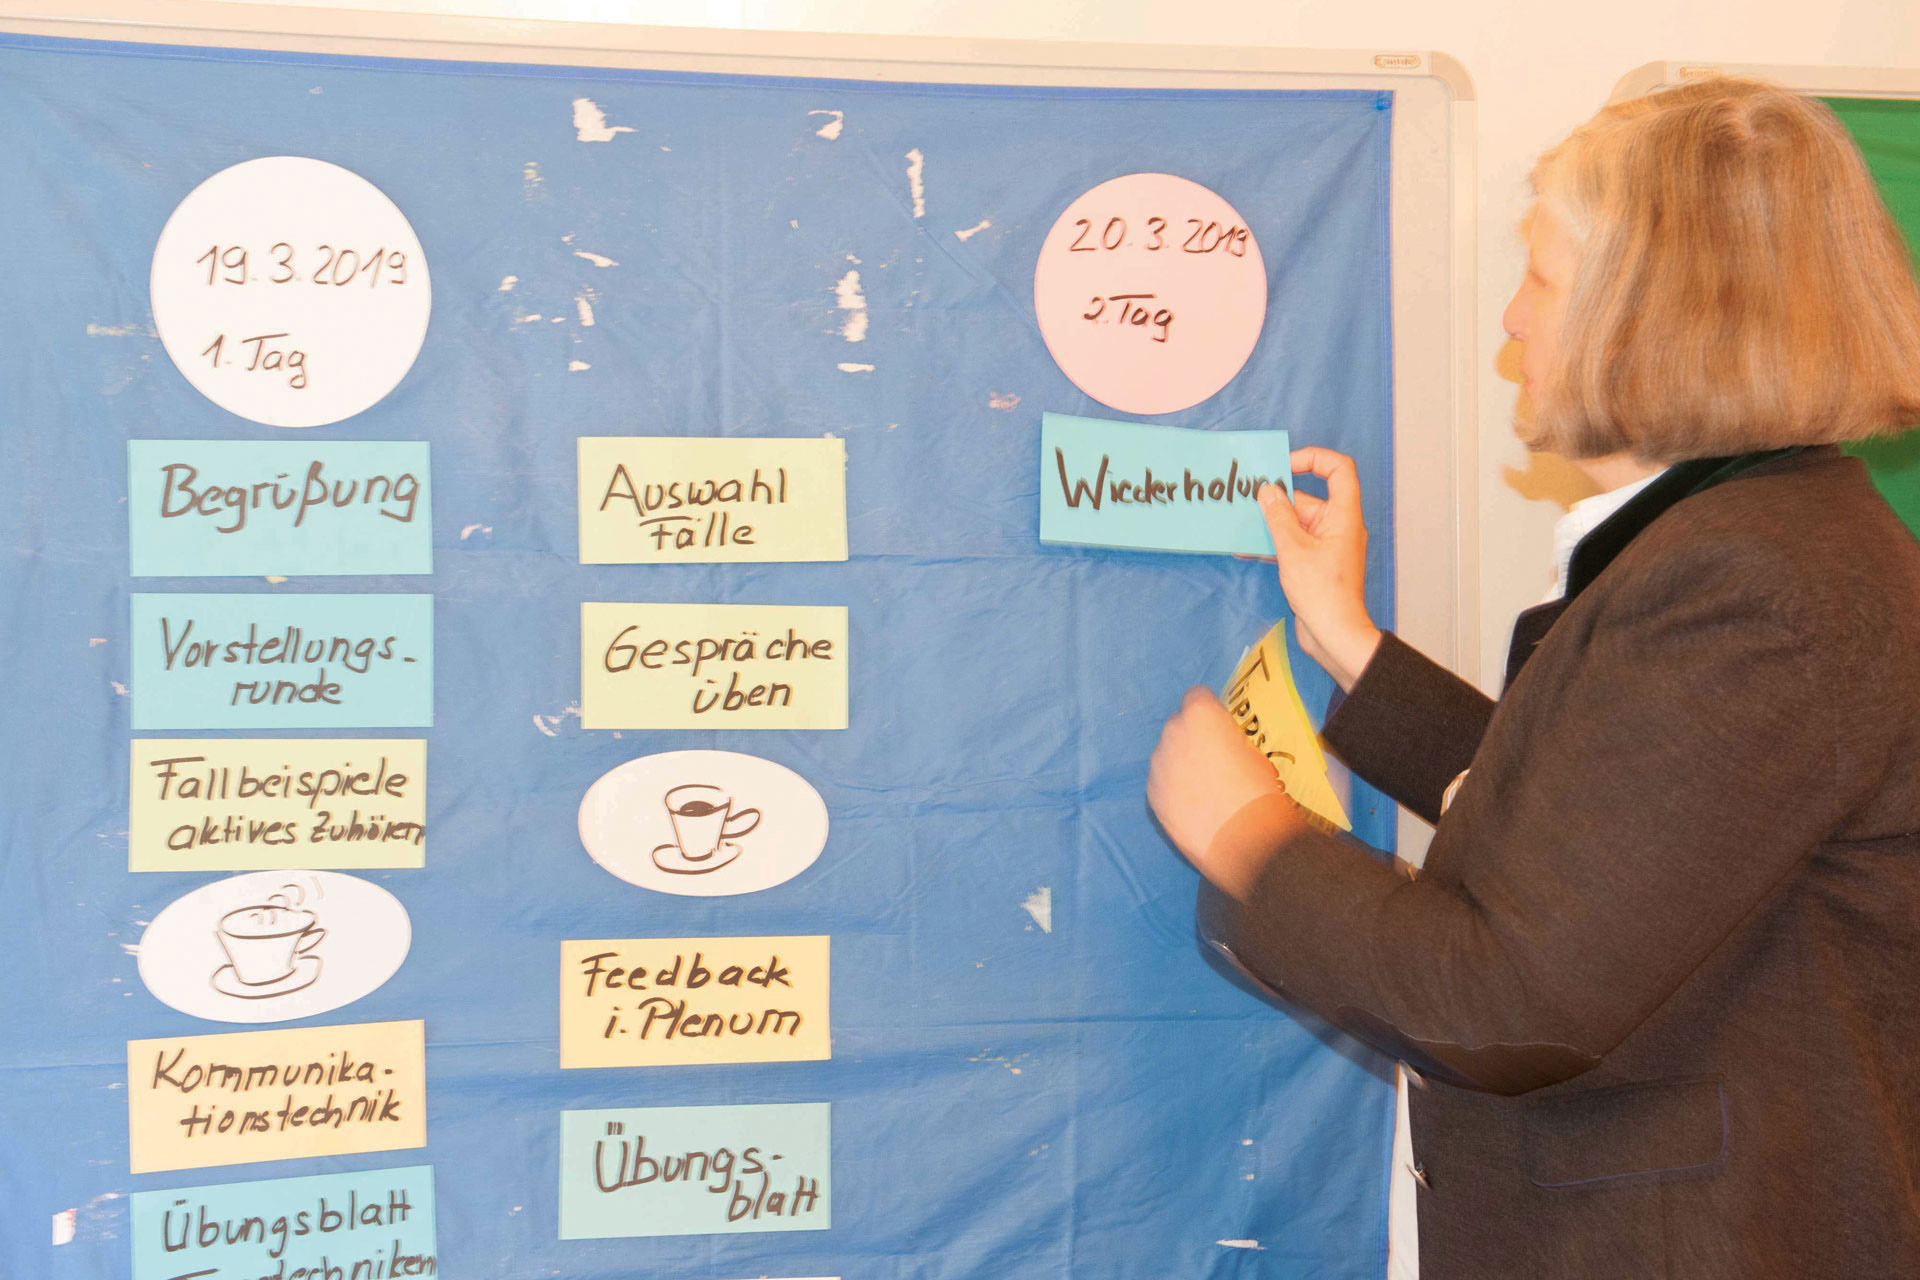 19.3.2019
1. Tag
Begrüßung
Vorstellungs-
runde
Fallbeispiele
aktives Zuhören
Kommunika-
tionstechnik
Übungsblatt
Auswahl
Fälle
Gespräche
üben
Feedback
i. Plenum
Übungs-
blatt
20.3.2019
2. Tag
Wiederholung
Tipps